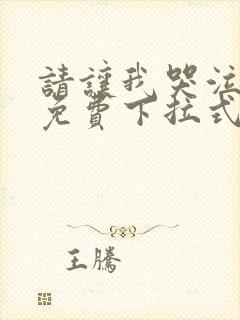 請讓我哭泣
免費下拉式
王騰